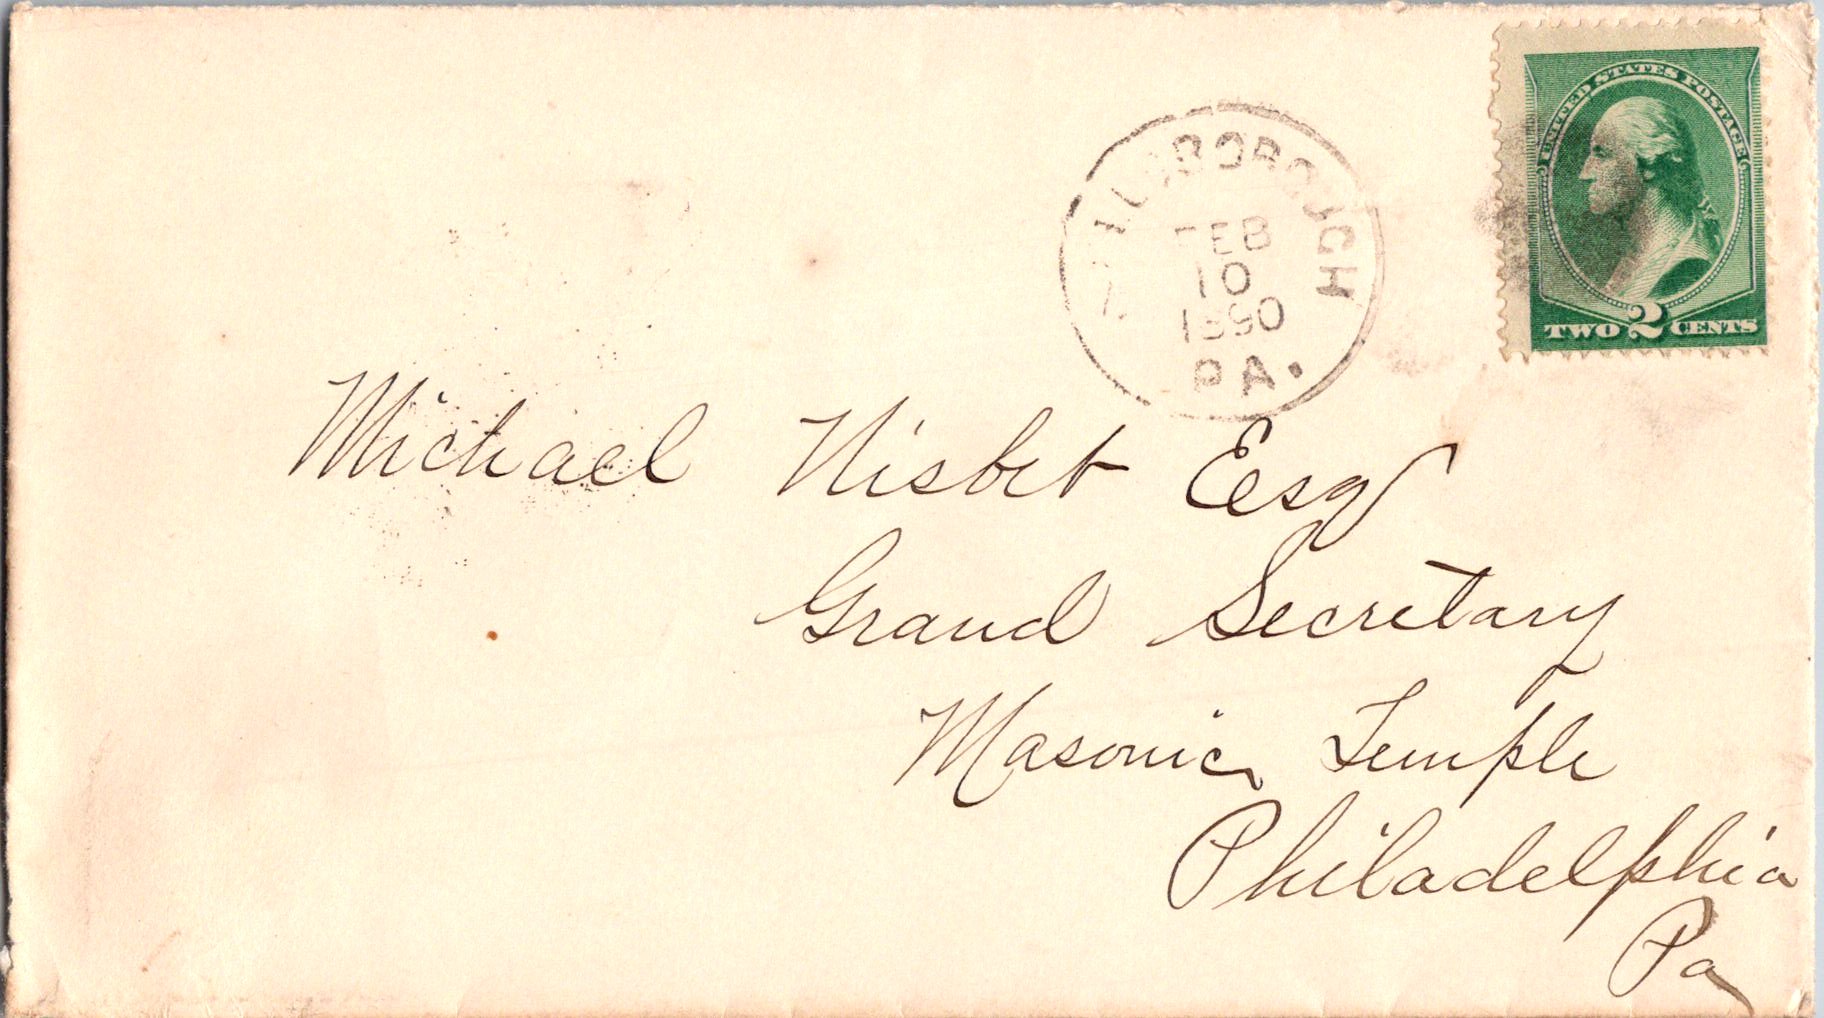 FEB
10
1890
PA.
UNITED STATES POSTAGE
TWO 2 CENTS
Michael Nisbet Esq
Grand Secretary
Masonic Temple
Philadelphia
Pa